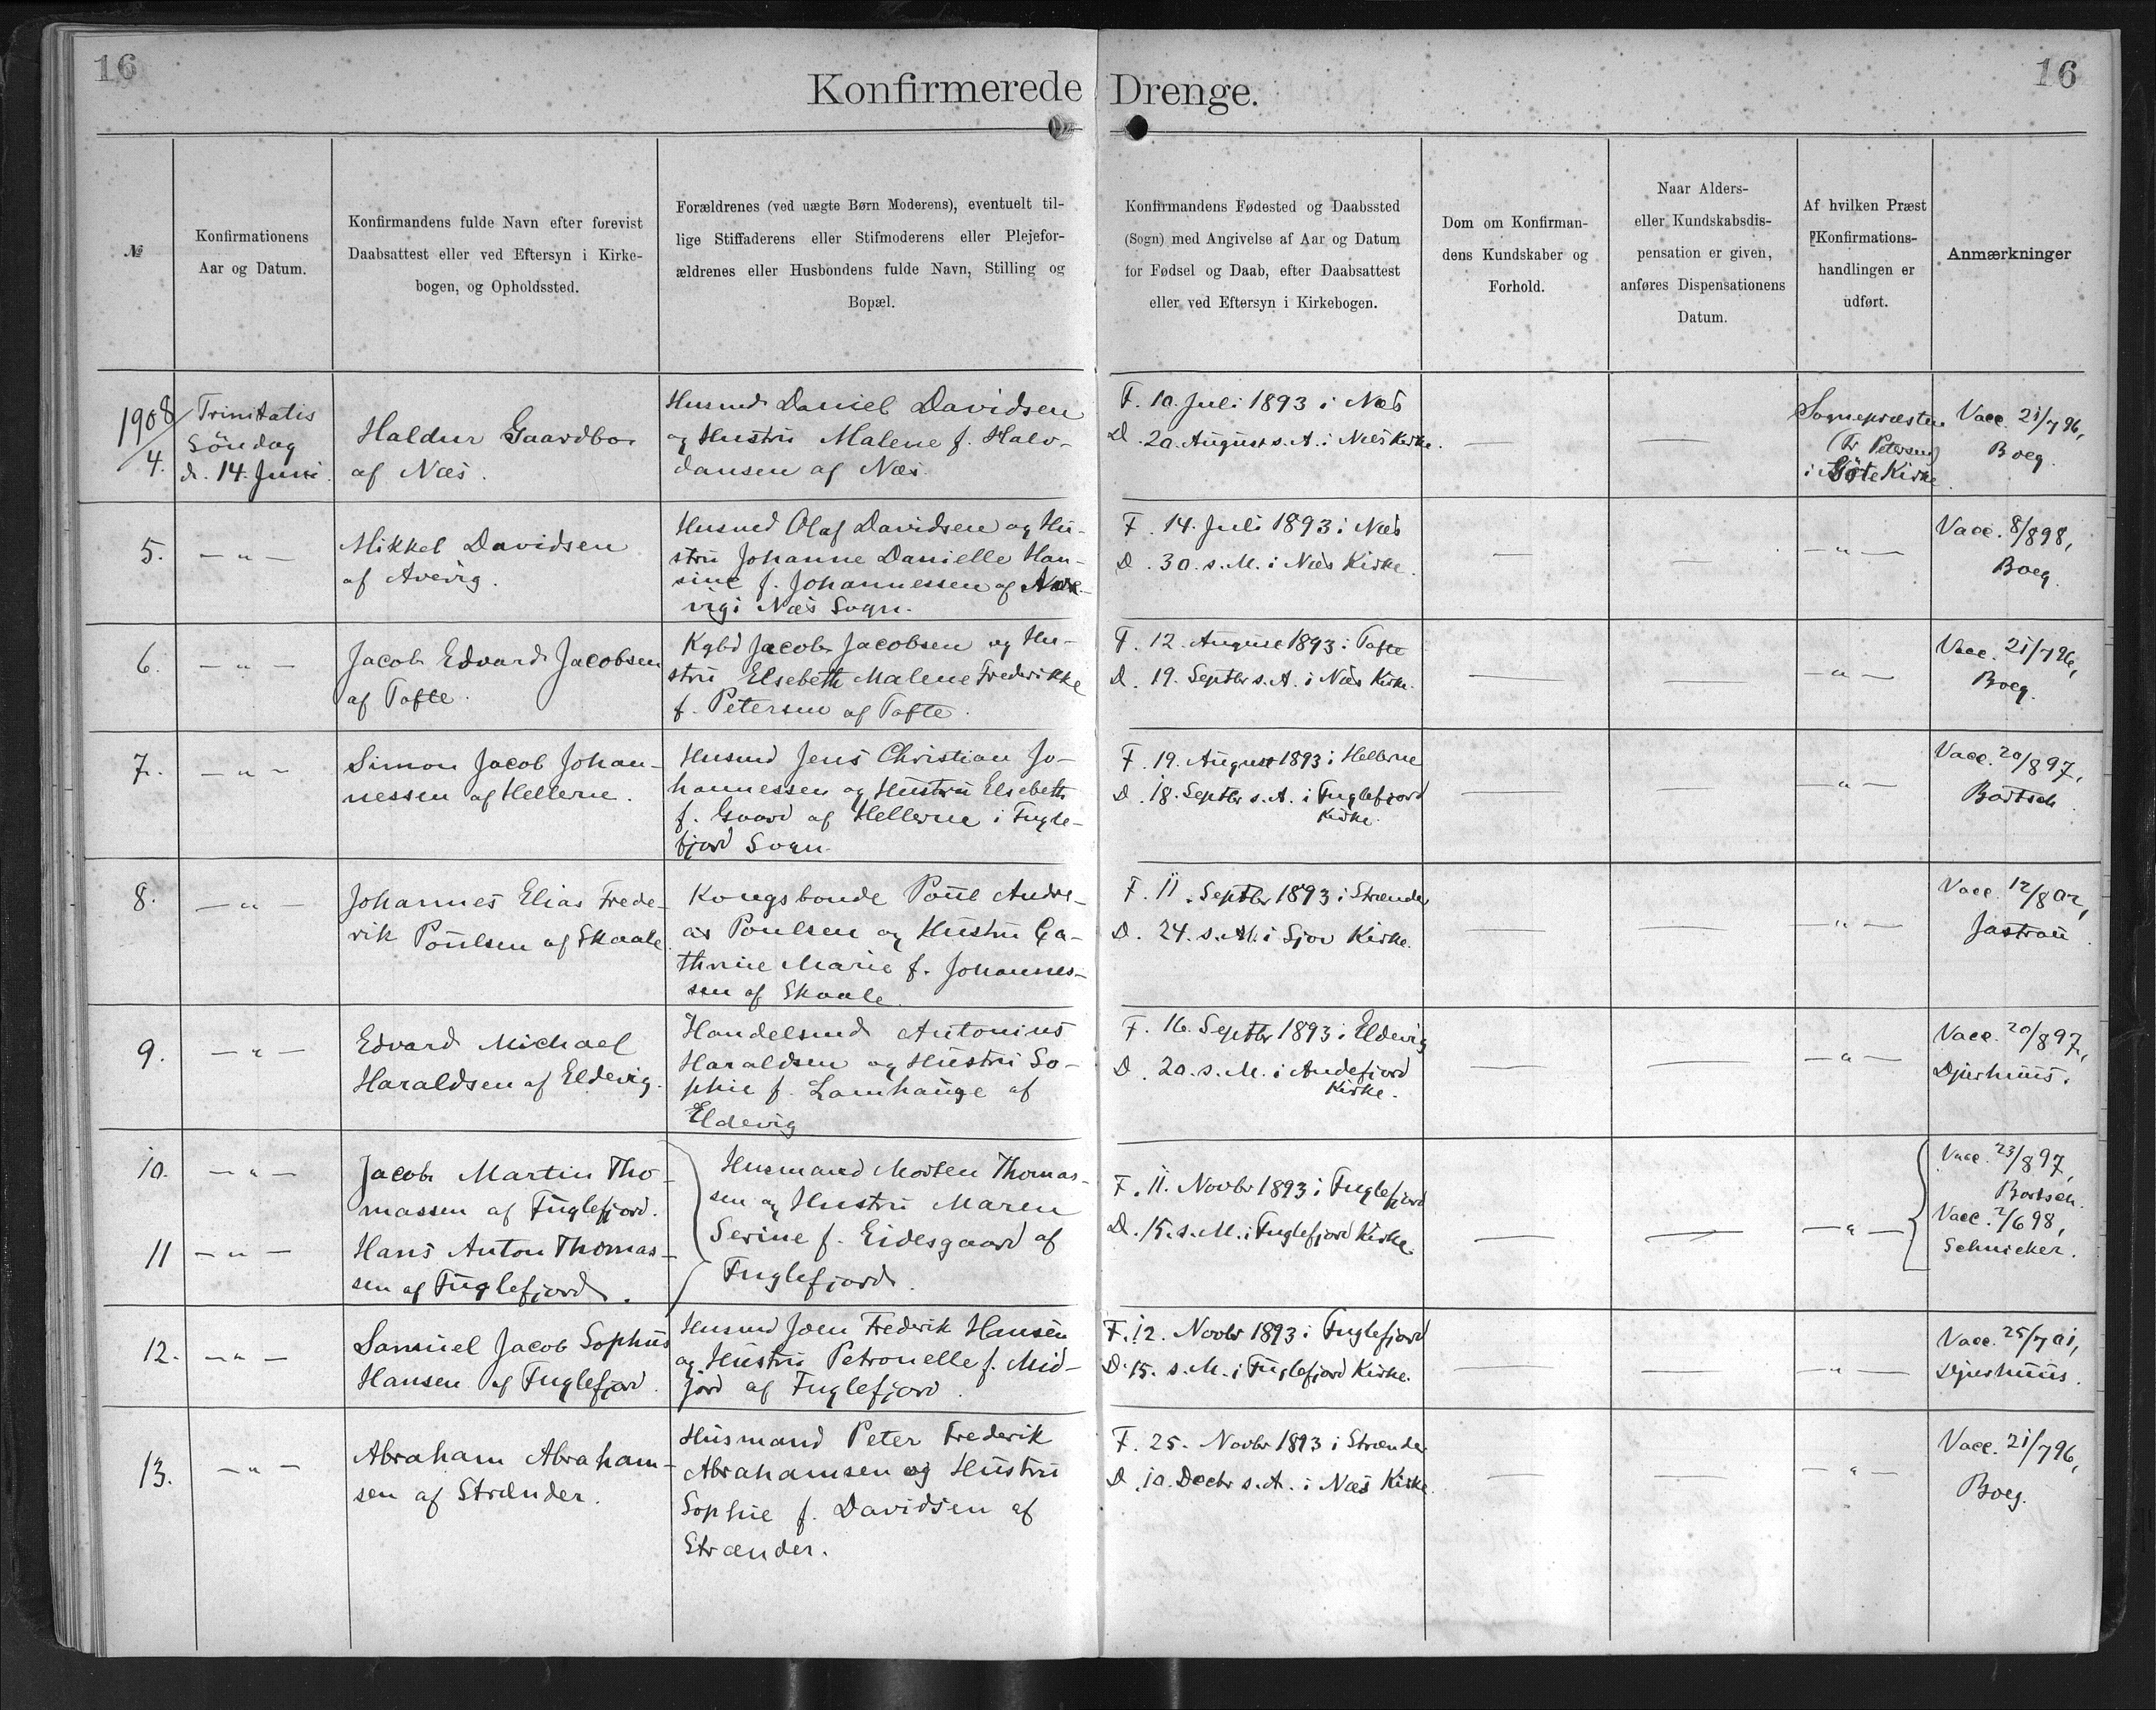 16
Konfirmerede Drenge.
16
№
Konfirmationens
Aar og Datum.
Konfirmandens fulde Navn efter forevist
Daabsattest eller ved Eftersyn i Kirke-
bogen, og Opholdssted.
Forældrenes (ved uægte Børn Moderens), eventuelt til-
lige Stiffaderens eller Stifmoderens eller Plejefor-
ældrenes eller Husbondens fulde Navn, Stilling og
Bopæl.
Konfirmandens Fødested og Daabssted
(Sogn) med Angivelse af Aar og Datum
for Fødsel og Daab, efter Daabsattest
eller ved Eftersyn i Kirkebogen.
Dom om Konfirman-
dens Kundskaber og
Forhold.
Naar Alders-
eller Kundskabsdis-
pensation er given,
anføres Dispensationens
Datum.
Af hvilken Præst
Konfirmations-
handlingen er
udført.
Anmærkninger
1908/4.
Trinitatis
Söndag
d. 14. Juni
Haldur Gaardbo
af Næs.
Husmd Daniel Davidsen
og Hustru Malene f. Halv-
dansen af Næs.
F. 10. Juli 1893 i Næs
D. 20. August s. A. i Næs Kirke.
—
—
Sognepræsten
(Fr Petersen)
i Göte Kirke.
Vacc. 21/7 96,
Boeg.
5.
— " —
Mikkel Davidsen
af Avevig.
Husmd Olaf Davidsen og Hu-
stru Johanne Danielle Han-
sine f. Johannessen af Ave-
vig i Næs Sogn.
F. 14. Juli 1893 i Næs
D. 30. s. M. i Næs Kirke.
—
—
— " —
Vacc. 8/8 98,
Boeg.
6.
— " —
Jacob Edvard Jacobsen
af Tofte.
Kgbd Jacob Jacobsen og Hu-
stru Elsebeth Malene Frederikke
f. Petersen af Tofte.
F. 12. August 1893 i Tofte
D. 19. Septbr s. A. i Næs Kirke.
—
—
— " —
Vacc. 21/7 96,
Boeg.
7.
— " —
Simon Jacob Johan-
nessen af Hellerne.
Husmd Jens Christian Jo-
hannessen og Hustru Elsebeth
f. Gaard af Hellerne i Fugle-
fjord Sogn.
F. 19. August 1893 i Hellerne
D. 18. Septbr s. A. i Fuglefjord
Kirke.
—
—
— " —
Vacc. 20/8 97,
Bartsch.
8.
— " —
Johannes Elias Frede-
rik Poulsen af Skaale.
Kongsbonde Poul Andre-
as Poulsen og Hustru Ca-
thrine Marie f. Johannes-
sen af Skaale.
F. 11. Septbr 1893 i Strænder
D. 24. s. M. i Sjov Kirke.
—
—
— " —
Vacc. 12/8 02,
Jastrau.
9.
— " —
Edvard Michael
Haraldsen af Eldevig.
Handelsmd Antonius
Haraldsen og Hustru So-
phie f. Lamhauge af
Eldevig
F. 16. Septbr 1893 i Eldevig
D. 20. s. M. i Andefjord
Kirke.
—
—
— " —
Vacc. 20/8 97,
Djurhuus.
10.
— " —
Jacob Martin Tho-
massen af Fuglefjord.
11
— " —
Hans Anton Thomas-
sen af Fuglefjord.
Husmand Morten Thomas-
sen og Hustru Maren
Serine f. Eidesgaard af
Fuglefjord.
F. 11. Novbr 1893 i Fuglefjord
D. 15. s. M. i Fuglefjord Kirke.
—
—
— " —
Vacc. 23/8 97,
Bartsch.
Vacc. 2/6 98,
Schnicker.
12.
— " —
Samuel Jacob Sophus
Hansen af Fuglefjord.
Husmd Joen Frederik Hansen
og Hustru Petronelle f. Mid-
jord af Fuglefjord.
F. 12. Novbr 1893 i Fuglefjord
D. 15. s. M. i Fuglefjord Kirke.
—
—
— " —
Vacc. 25/7 01,
Djurhuus.
13.
— " —
Abraham Abraham-
sen af Strænder.
Husmand Peter Frederik
Abrahamsen og Hustru
Sophie f. Davidsen af
Strænder.
F. 25. Novbr 1893 i Strænder
D. 10. Decbr s. A. i Næs Kirke.
—
—
— " —
Vacc. 21/7 96,
Boeg.